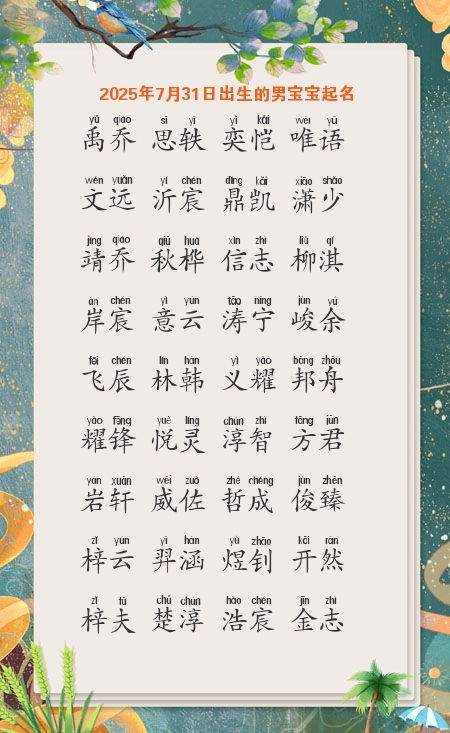 2025年7月31日出生的男宝宝起名
yǔ qiáo sī yì yì kǎi wéi yǔ
禹乔 思轶 奕恺 唯语
wén yuǎn yí chén dǐng kǎi xiāo shǎo
文远 沂宸 鼎凯 潇少
jìng qiáo qiū huà xìn zhì liǔ qí
靖乔 秋桦 信志 柳淇
àn chén yì yún tāo níng jùn yú
岸宸 意云 涛宁 峻余
fēi chén lín hán yì yào bāng zhōu
飞辰 林韩 义耀 邦舟
yào fēng yuè líng chún zhì fāng jūn
耀锋 悦灵 淳智 方君
yán xuān wēi zuǒ zhé chéng jùn zhēn
岩轩 威佐 哲成 俊臻
zǐ yún yì hán yù zhāo kāi rán
梓云 羿涵 煜钊 开然
zǐ fū chǔ chún hào chén jīn zhì
梓夫 楚淳 浩宸 金志